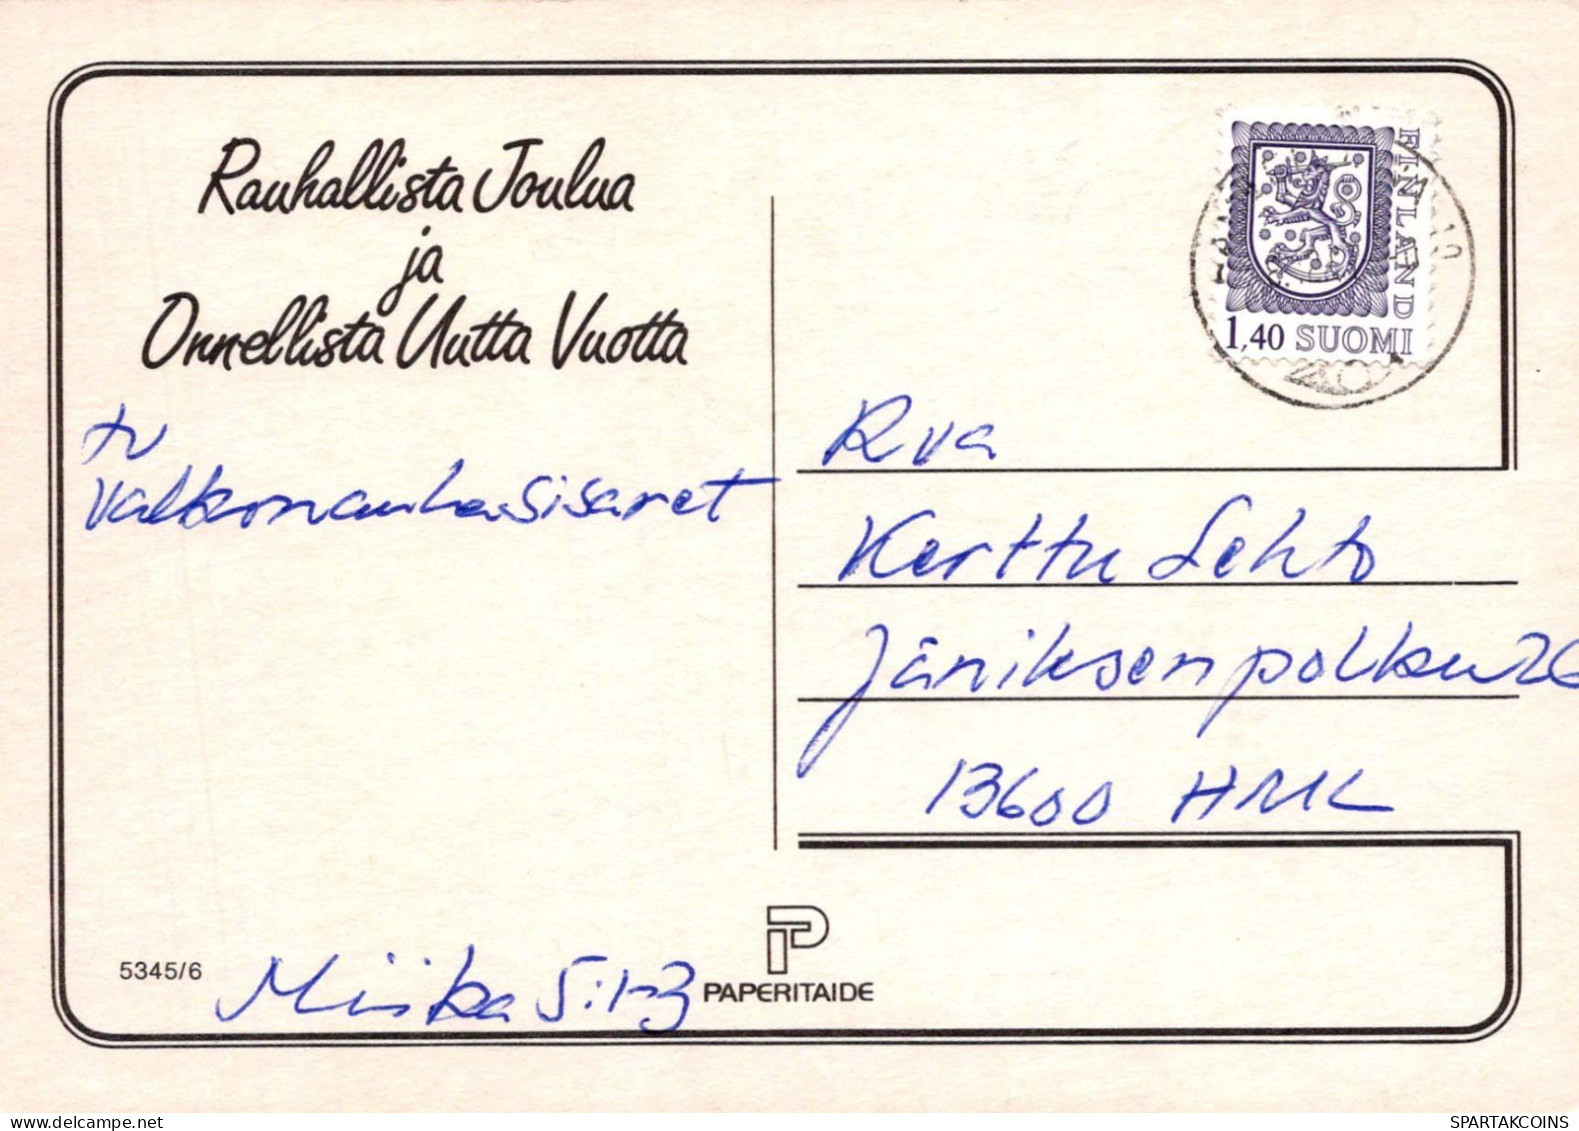 Rauhallista Joulua
ja
Onnellista Uutta Vuotta
tv
Valkonauhasisaret
Miika 5:1-3
5345/6
PAPERITAIDE
FINLAND
1,40 SUOMI
Rva
Kerttu Lehto
Jäniksenpolku 26
13600 HMK
SPARTAKCOINS